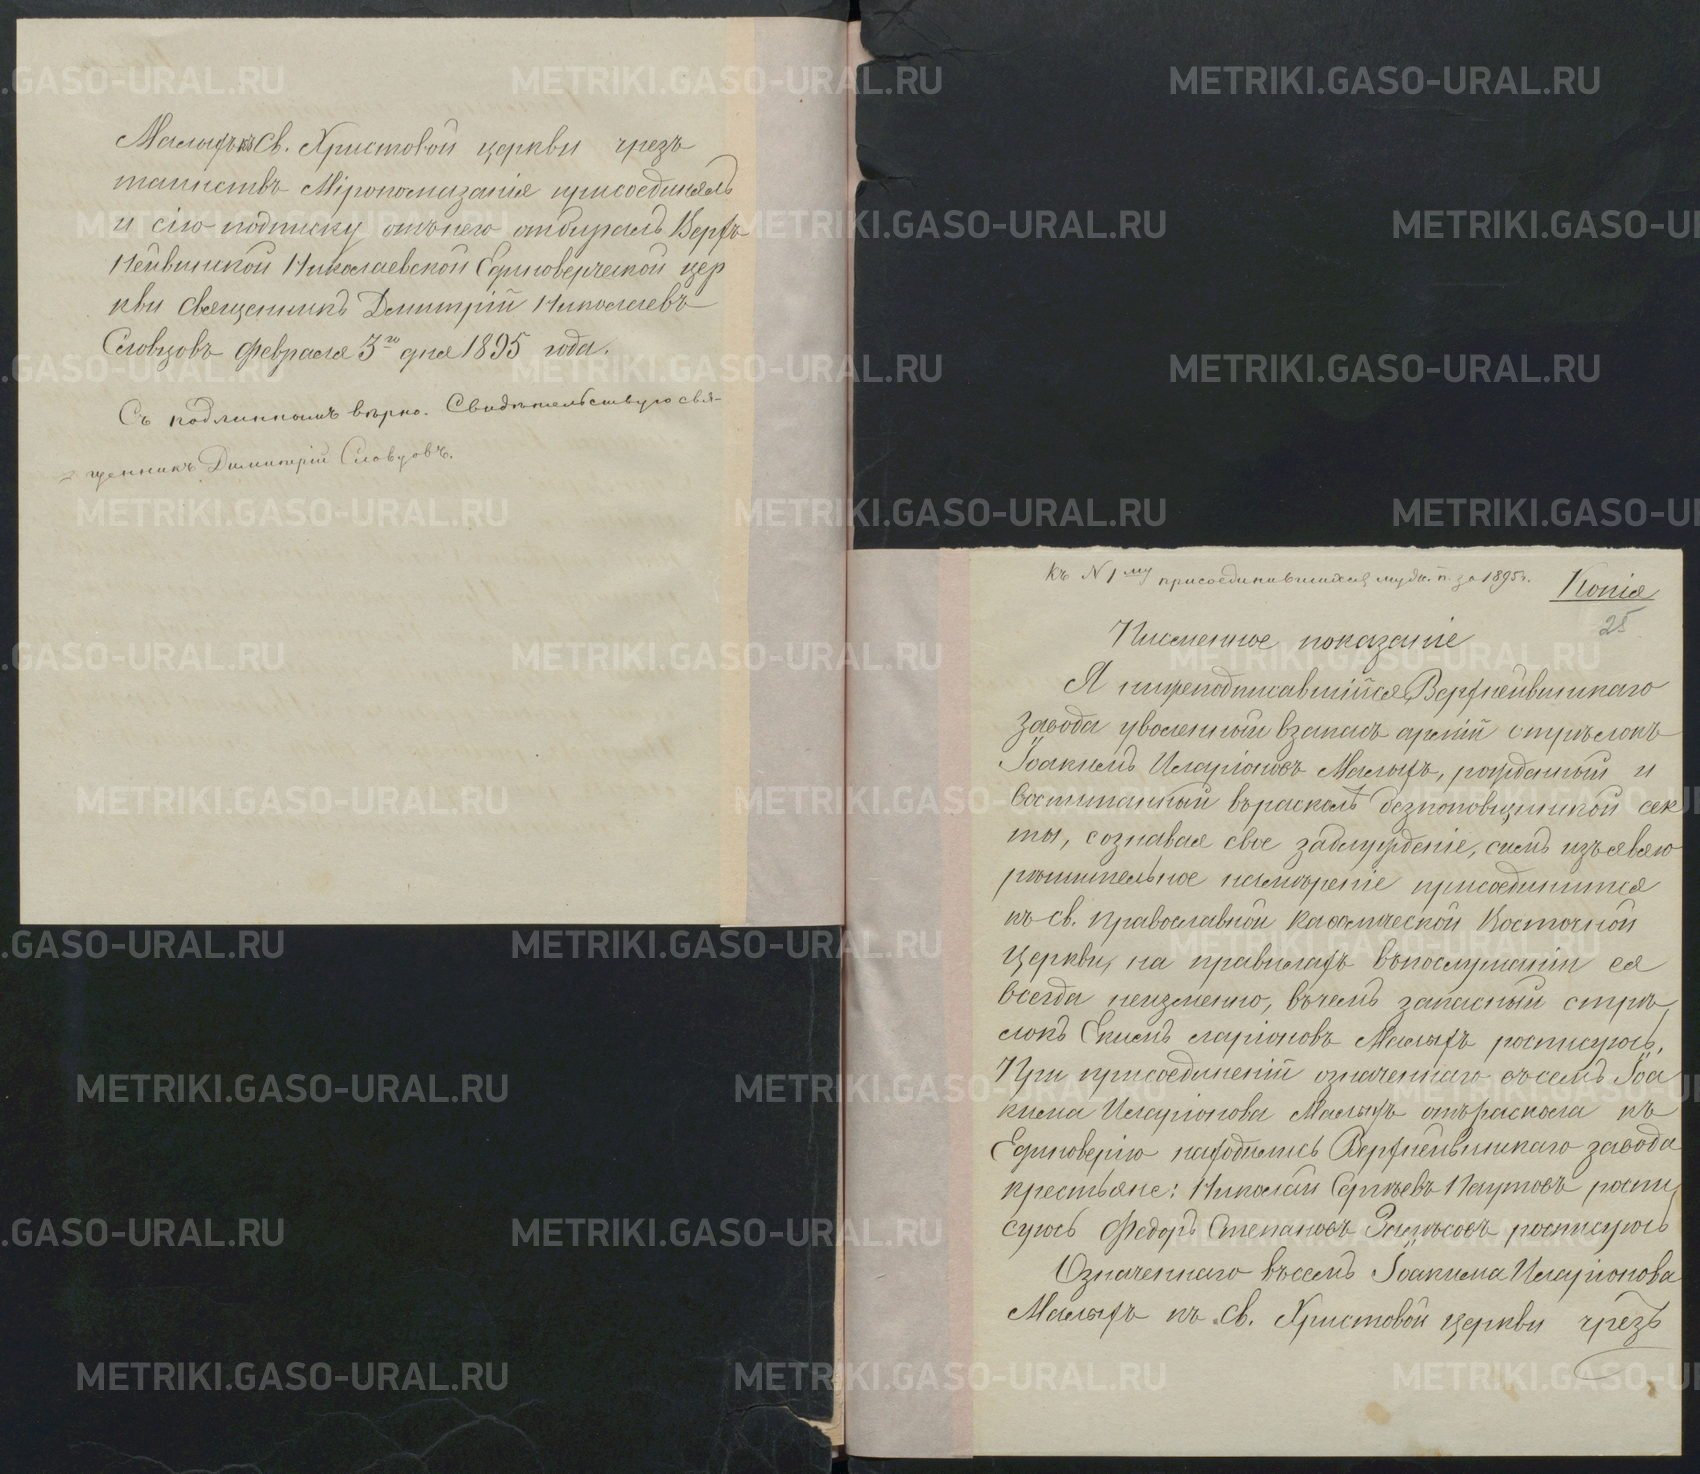 Малыхъ къ Св. Христовой церкви чрезъ
таинство Мѵропомазанія присоединялъ
и сію подписку отъ него отбиралъ Верхъ
Нейвинской Николаевской Единоверческой цер
кви священникъ Димитрій Николаевъ
Словцовъ февраля 3го дня 1895 года.
Съ подлиннымъ вѣрно. Свидѣтельствую свя-
щенникъ Димитрій Словцовъ.
Къ № 1му присоединившихся муж. п. за 1895 г.
Копія
25
Писменное показаніе
Я нижеподписавшійся Верхнейвинскаго
завода уволенный взапасъ арміи стрѣлокъ
Іоакимъ Иларіоновъ Малыхъ, рожданный и
воспитанный върасколѣ безпоповщинской сек
ты, сознавая свое заблужденіе, симъ изъявляю
рѣшительное намѣреніе присоединится
къ св. православной Каѳолической Восточной
Церкви, на правилахъ въпослушаніи ея
всегда неизменно, въчемъ запасный стрѣ
локъ Екимъ ларіоновъ Малыхъ росписуюсь,
При присоединеніи означеннаго въсемъ Іоа
кима Иларіонова Малыхъ отъ раскола къ
Единоверію находились Верхнейвинскаго завода
крестьяне: Николай Сергѣевъ Паутовъ роспи
суюсь Федоръ Степановъ росписуюсь
Означеннаго въсемъ Іоакима Иларіонова
Малыхъ къ Св. Христовой церкви чрезъ
METRIKI.GASO-URAL.RU